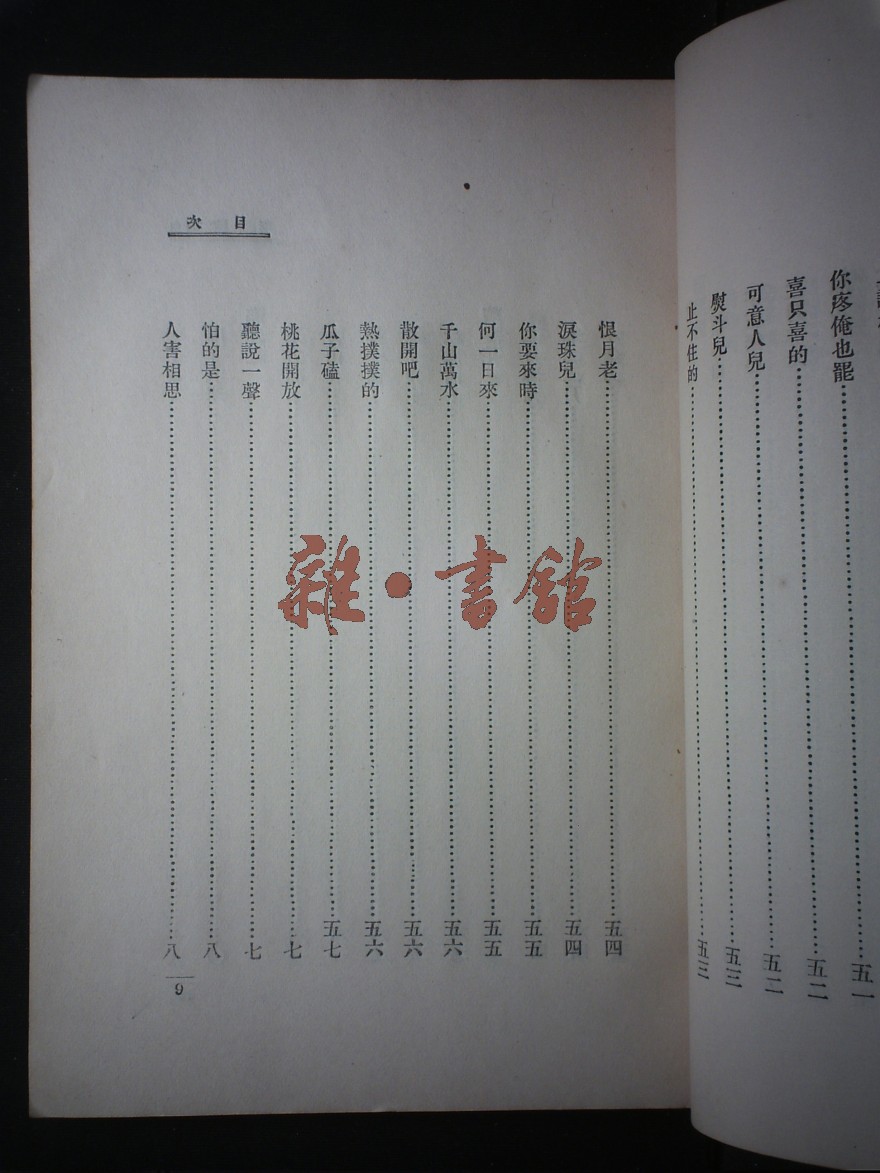 你疼俺也罷……五一
喜只喜的……五二
可意人兒……五二
熨斗兒……五三
止不住的……五三
目次
恨月老……五四
淚珠兒……五四
你要來時……五五
何一日來……五五
千山萬水……五六
散開吧……五六
熱撲撲的……五六
瓜子磕……五七
桃花開放……七
聽說一聲……七
怕的是……八
人害相思……八
9
雜·書館